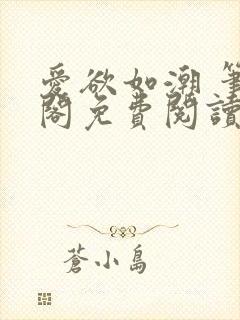 愛欲如潮 筆
閣免費閱讀
蒼小島